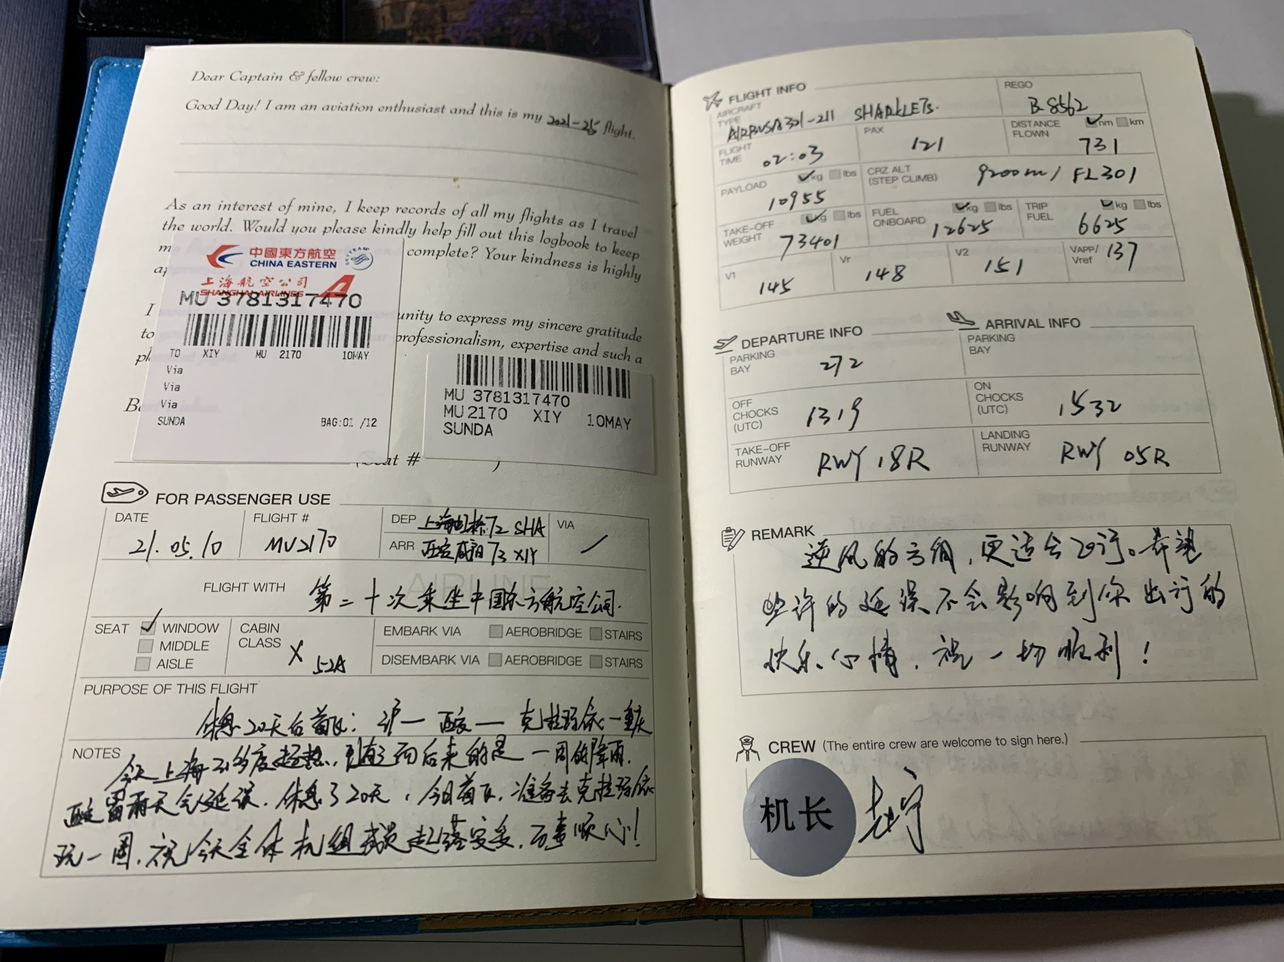 Dear Captain & fellow crew:
Good Day! I am an aviation enthusiast and this is my 2021-25 flight.
As an interest of mine, I keep records of all my flights as I travel
the world. Would you please kindly help fill out this logbook to keep
complete? Your kindness is highly
I
unity to express my sincere gratitude
to
professionalism, expertise and such a
中國東方航空
CHINA EASTERN
上海航空公司
SHANGHAI AIRLINES
MU 3781317470
TO XIY MU 2170 10MAY
Via
Via
Via
SUNDA BAG:01 /12
MU 3781317470
MU2170 XIY 10MAY
SUNDA
FOR PASSENGER USE
DATE 21.05.10
FLIGHT # MU2170
DEP 上海虹桥T2 SHA
ARR 西安咸阳T3 XIY
VIA /
FLIGHT WITH 第二十次乘坐中国东方航空公司.
SEAT WINDOW
MIDDLE
AISLE
CABIN CLASS X 52A
EMBARK VIA AEROBRIDGE STAIRS
DISEMBARK VIA AEROBRIDGE STAIRS
PURPOSE OF THIS FLIGHT
休息20天后首飞: 沪一西安一克拉玛依一重庆
NOTES 今天上海31多度超热, 而后来的是一周的降雨.
西安雷雨天会延误. 休息了20天, 今日首飞, 准备去克拉玛依
玩一周, 祝今天全体机组成员起落安妥, 万事顺心!
FLIGHT INFO
AIRCRAFT TYPE AIRBUS A321-211 SHARKLETs.
REGO B-8562
FLIGHT TIME 02:03
PAX 121
DISTANCE FLOWN nm km 731
PAYLOAD kg lbs 10955
CRZ ALT (STEP CLIMB) 9200m / FL301
TAKE-OFF WEIGHT kg lbs 73401
FUEL ONBOARD kg lbs 12625
TRIP FUEL kg lbs 6625
V1 145
Vr 148
V2 151
VAPP/ Vref 137
DEPARTURE INFO
PARKING BAY 272
OFF CHOCKS (UTC) 1319
TAKE-OFF RUNWAY RWY 18R
ARRIVAL INFO
PARKING BAY
ON CHOCKS (UTC) 1532
LANDING RUNWAY RWY 05R
REMARK
逆风的方向, 更适合飞行。希望
些许的延误不会影响到你出行的
快乐心情, 祝一切顺利!
CREW (The entire crew are welcome to sign here.)
机长